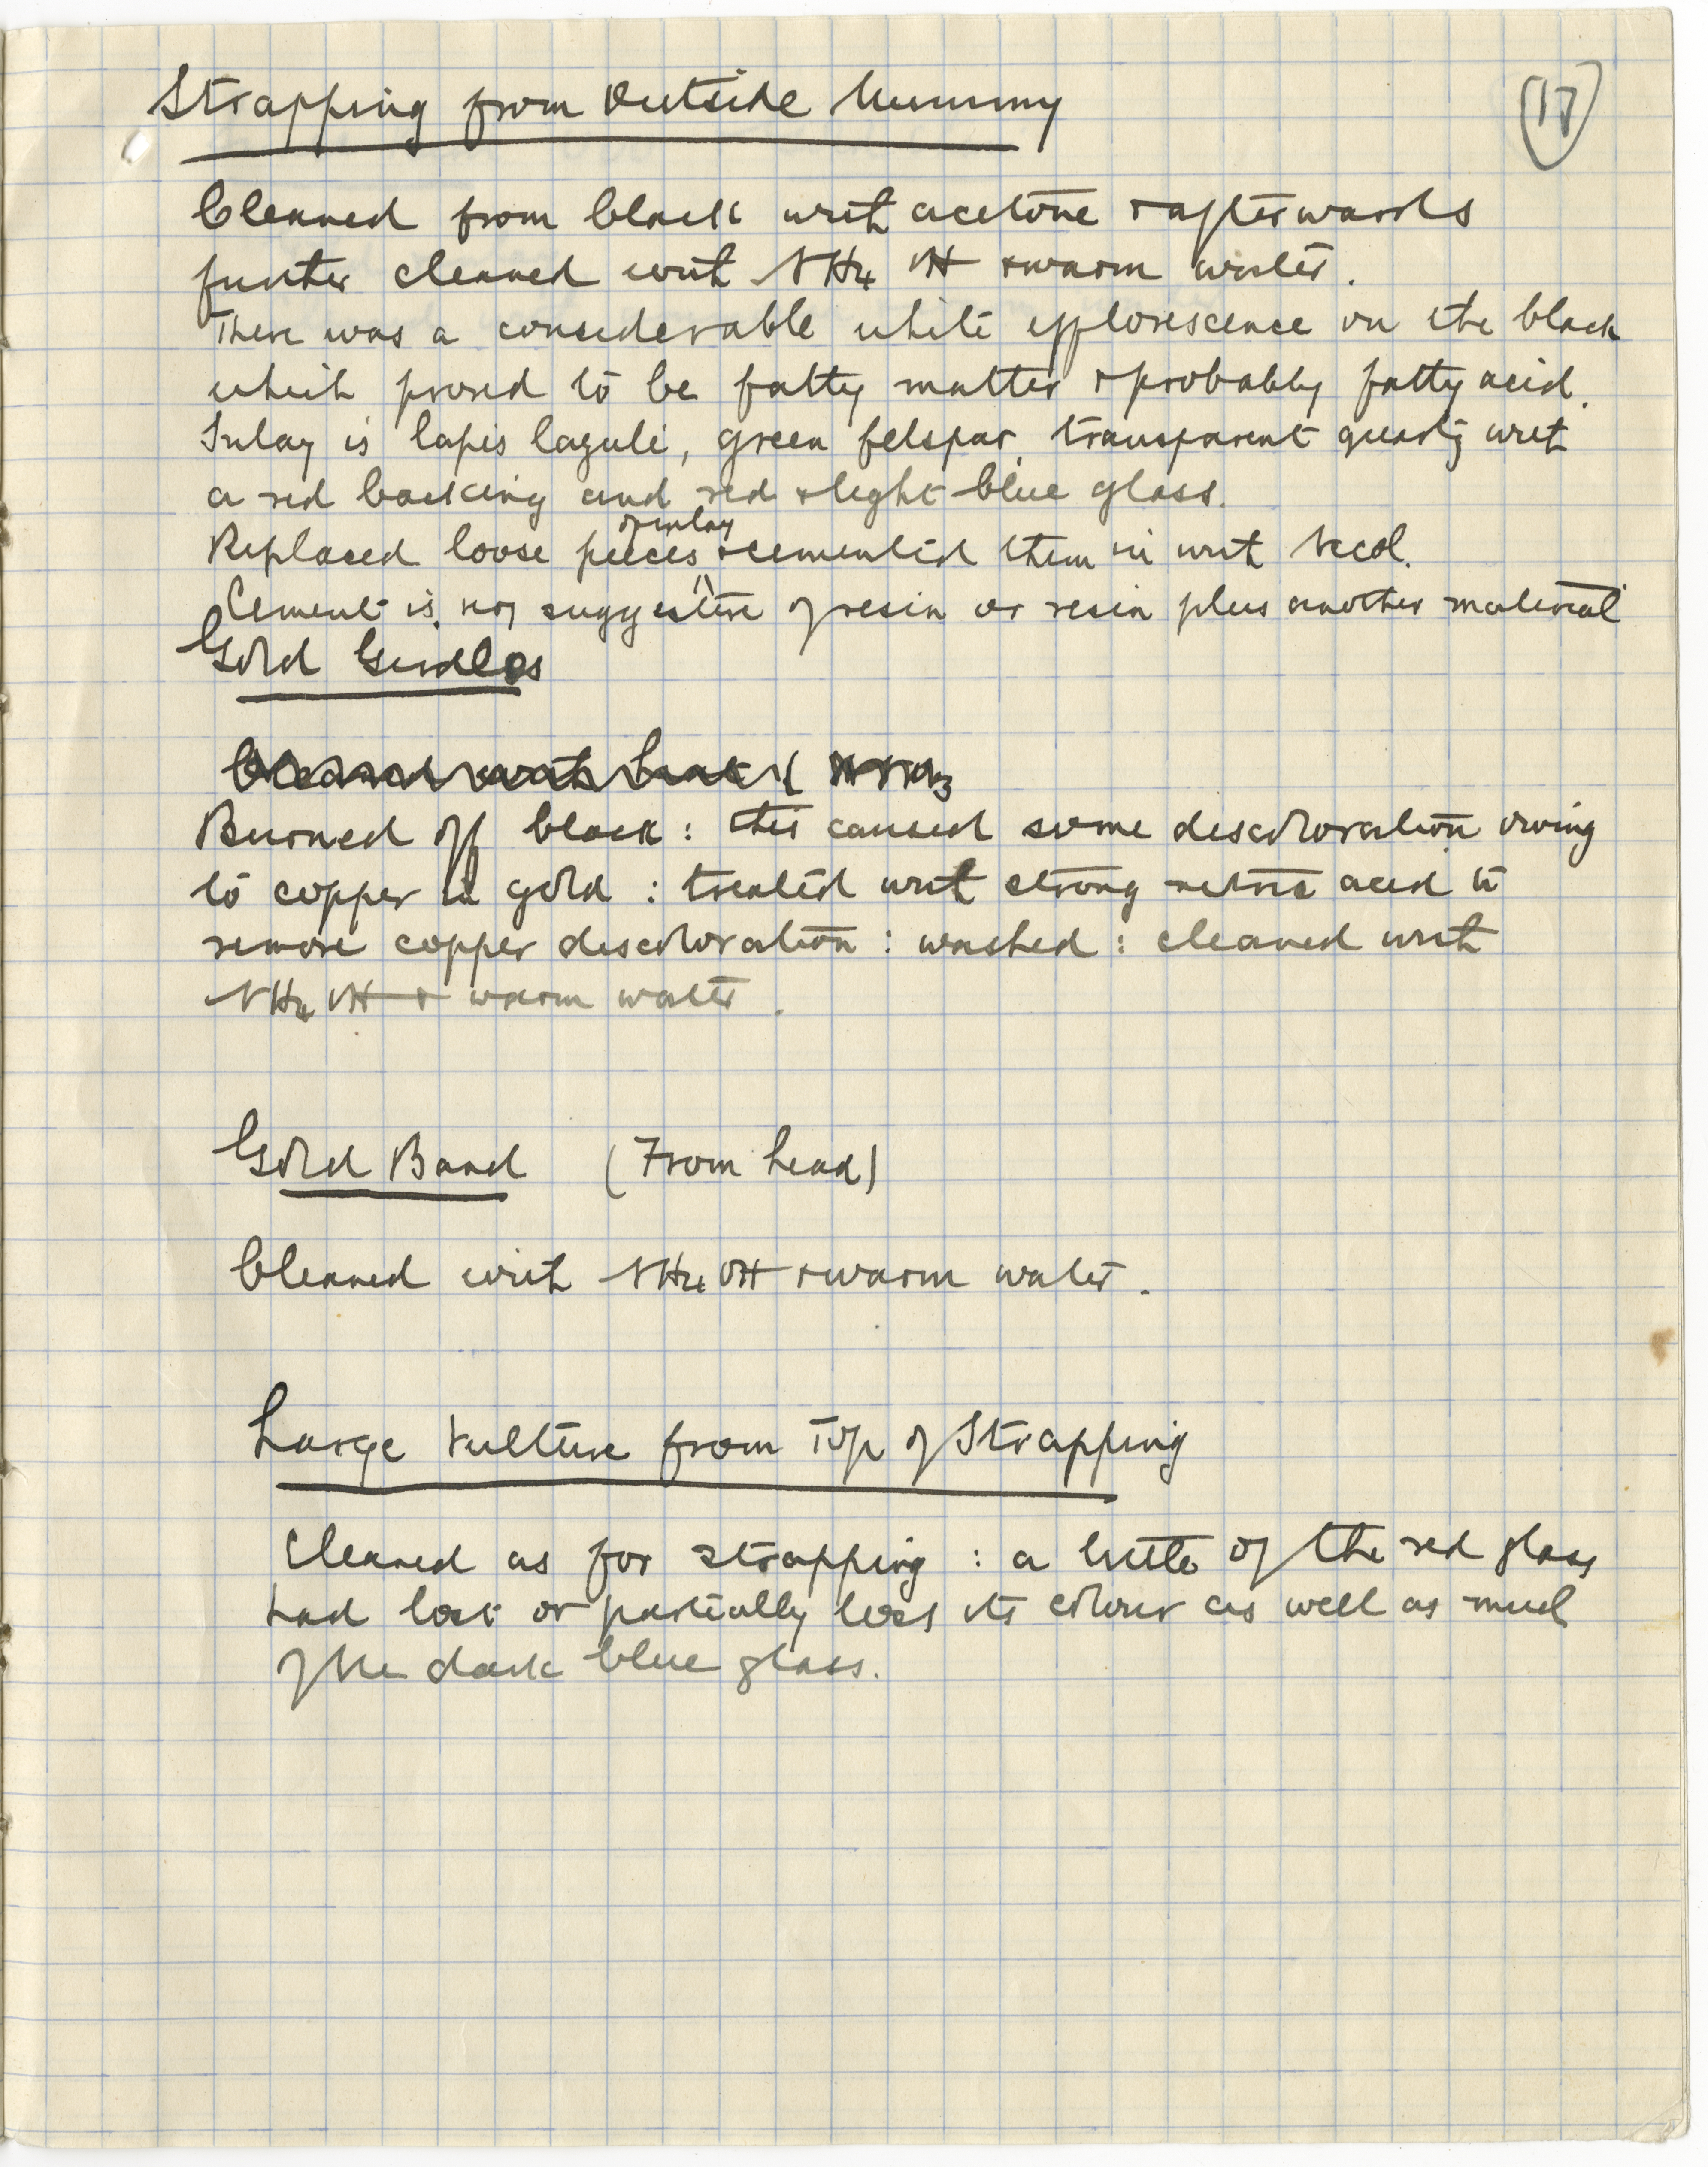 Strapping from Outside Mummy
17
Cleaned from black with acetone & afterwards
further cleaned with NH4 OH & warm water.
There was a considerable white efflorescence on the black
which proved to be fatty matter & probably fatty acid.
Inlay is lapis lazuli, green felspar, transparent quartz with
a red backing and red & light blue glass.
of inlay
Replaced loose pieces & cemented them in with
Cement is suggestive of resin or resin plus another material
Gold Girdles
Cleaned with heat & HNO3
Burned off black : this caused some discoloration owing
to copper in gold : treated with strong nitric acid to
remove copper discoloration : washed : cleaned with
NH4 OH & warm water.
Gold Band (From head)
Cleaned with NH4 OH & warm water.
Large Vulture from Top of Strapping
Cleaned as for strapping : a little of the red glass
had lost or partially lost its colour as well as much
of the dark blue glass.